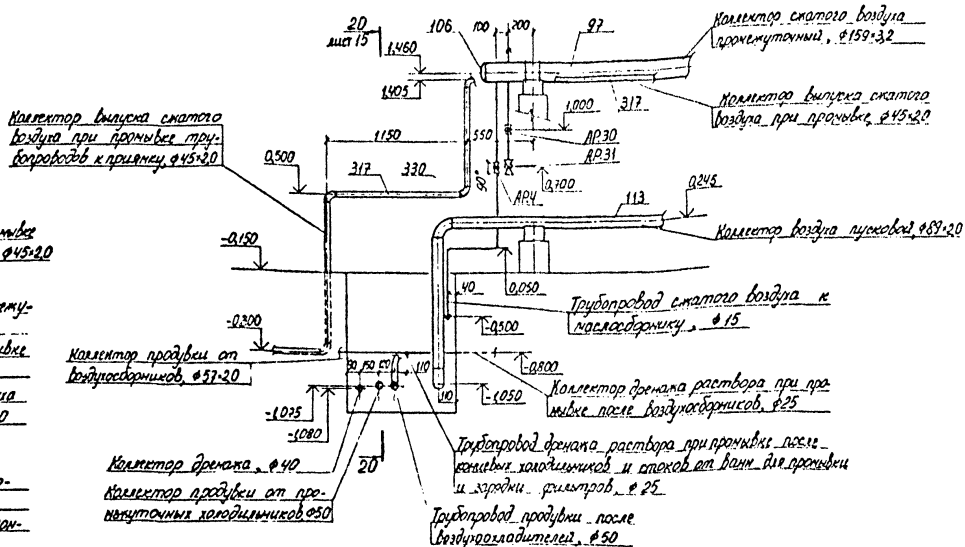 20
лист 15
1,460
1,405
106
100
200
97
Коллектор сжатого воздуха
промежуточный, ф159×3,2
317
Коллектор выпуска сжатого
воздуха при промывке, ф45×2,0
1,000
АР.30
АР.31
0,700
АР.4
90°
Коллектор выпуска сжатого
воздуха при промывке тру-
бопроводов к приямку, ф45×2,0
1150
550
0,500
317
330
113
0,245
Коллектор воздуха пусковой, ф89×2,0
ф45×2,0
-0,150
0,050
40
Трубопровод сжатого воздуха к
маслосборнику, ф15
-0,500
-0,300
Коллектор продувки от
воздухосборников, ф57×2,0
150
110
-0,800
-1,050
110
Коллектор дренажа раствора при про-
мывке после воздухосборников, ф25
-1,075
-1,080
20
Коллектор дренажа, ф40
Коллектор продувки от про-
межуточных холодильников, ф50
Трубопровод дренажа раствора при промывке после
концевых холодильников и стоков от ванн для промывки
и зарядки фильтров, ф25
Трубопровод продувки после
воздухоохладителей, ф50